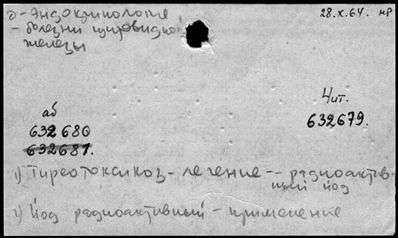 д – Эндокринология
28.X.64. нр
– болезни щитовидной
железы
аб
Чит.
632 680
632679.
632681.
1) Тиреотоксикоз – лечение – – радиоактив-
ный йод
1) Йод радиоактивный – применение